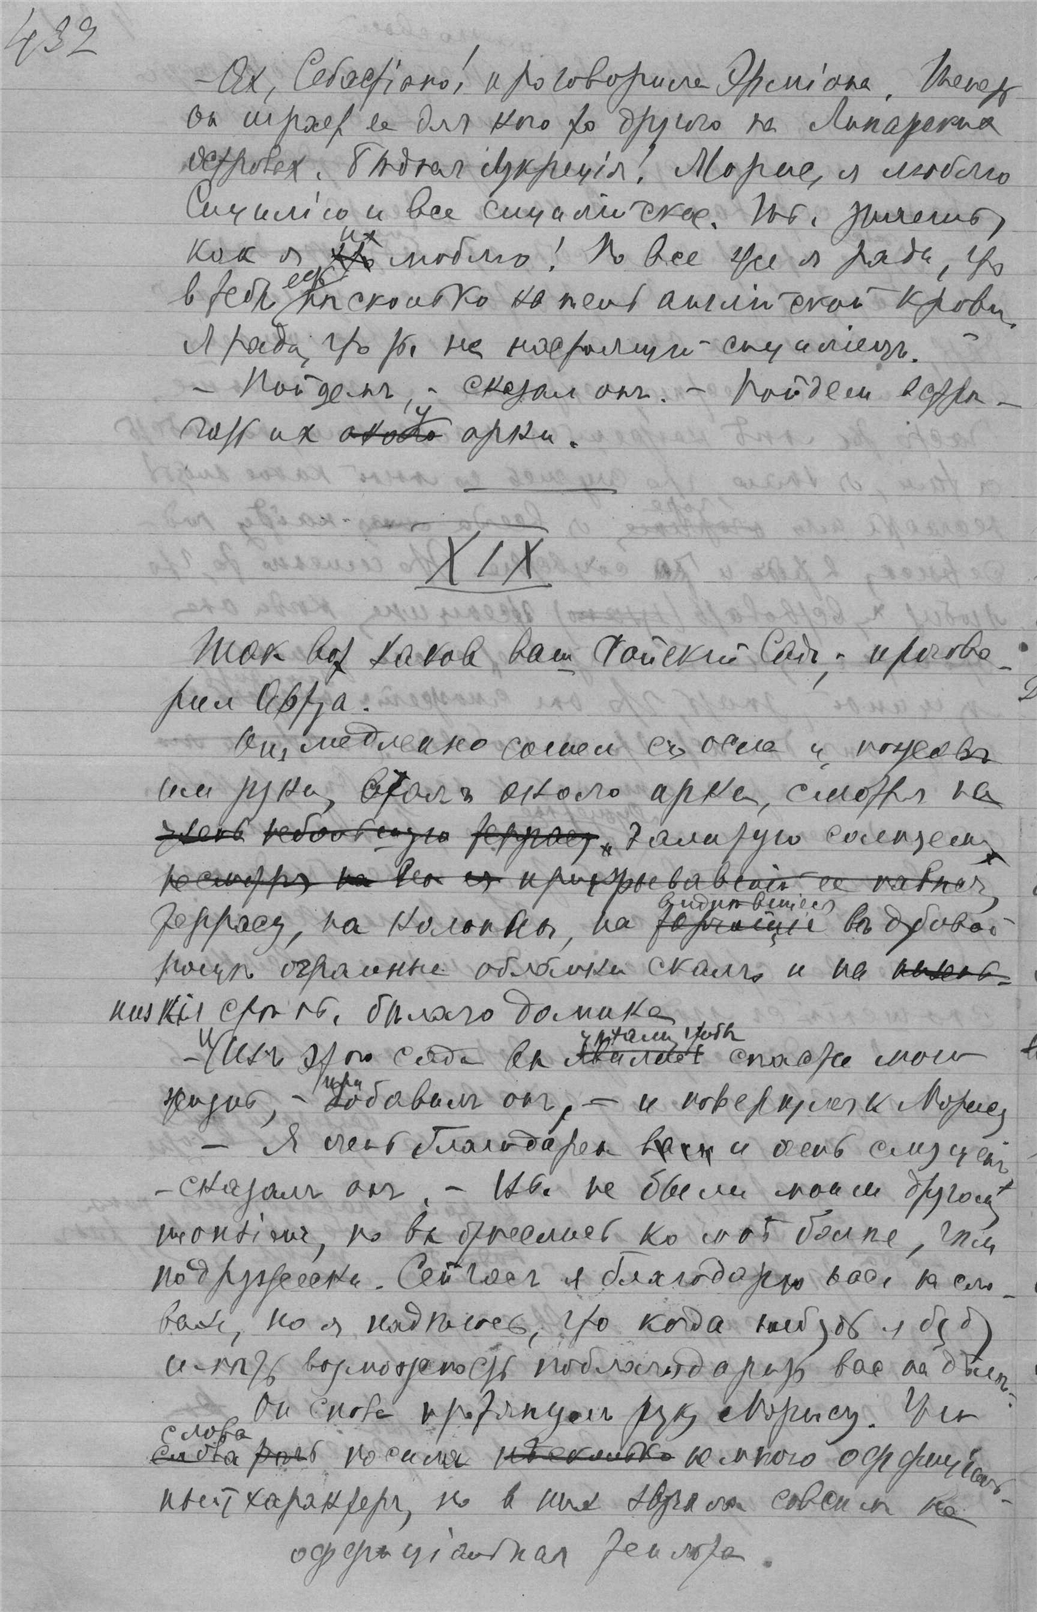 432
- Ах, Себастiано! проговорила Эрмiона. Теперь
он играет ее для кого то другого на Липарских
островах. Бѣдная Лукрецiя! Морис, я люблю
Сицилiю и все сицилiйское. Ты знаешь,
как я их люблю! Но все же я рада, что
в тебѣ есть нѣсколько капель англiйской крови.
Я рада, что ты не настоящiй сицилiецъ.
- Пойдемъ, - сказал онъ. - Пойдем встрѣ-
чать их у арки.
XIX
Так вот каков ваш Райскiй Садъ, - прогово-
рил Артуа.
Онъ медленно сошел съ осла и, пожавъ
им руки, сталъ около арки, смотря на
залитую солнцемъ
террасу, на колонны, на виднѣвшiеся въ дубовой
рощѣ огромные обломки скалъ и на
низкiя стѣны бѣлаго домика
- И изъ этого сада вы уѣхали, чтобы спасти мою
жизнь, - прибавилъ онъ, - и повернулся к Морису
- Я очень благодарен вам и очень смущенъ
- сказалъ онъ. - Мы не были моим другомъ,
monsieur, но вы отнеслись ко мнѣ болѣе, чѣм
подружески. Сейчасъ я благодарю вас на сло-
вах, но я надѣюсь, что когда нибудь я буду
имѣть возможность поблагодарить вас на дѣлѣ.
Он снова протянулъ руку Морису. Его
слова носили немного оффицiаль-
ный характеръ, но в них звучала совсѣм не
оффицiальная теплота.